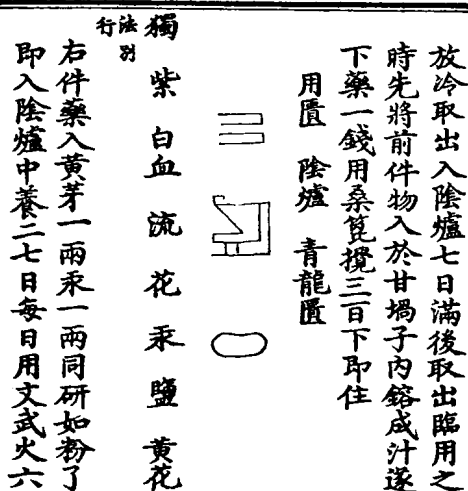 放冷取出入陰爐七日滿後取出臨用之
時先將前件物入於甘堝子內鎔成汁遂
下藥一錢用桑篦攪三百下即住
用匱 陰爐 青龍匱
獨紫白血流花汞鹽黃花
法別
行
右件藥入黃芽一兩汞一兩同研如粉了
即入陰爐中養二七日每日用文武火六